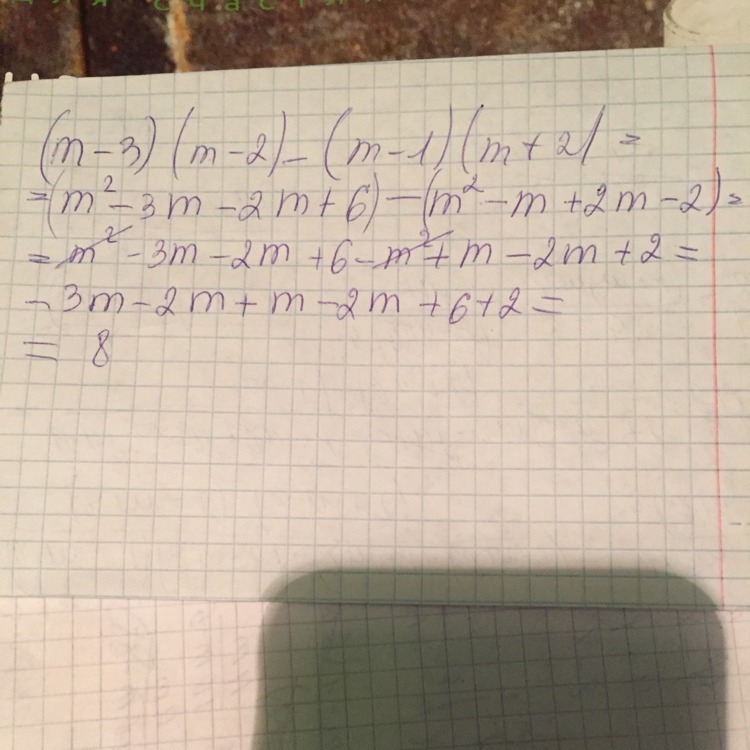 для счастья
(m-3)(m-2)-(m-1)(m+2)=
=(m²-3m-2m+6)-(m²-m+2m-2)=
=m²-3m-2m+6-m²+m-2m+2=
-3m-2m+m-2m+6+2=
= 8